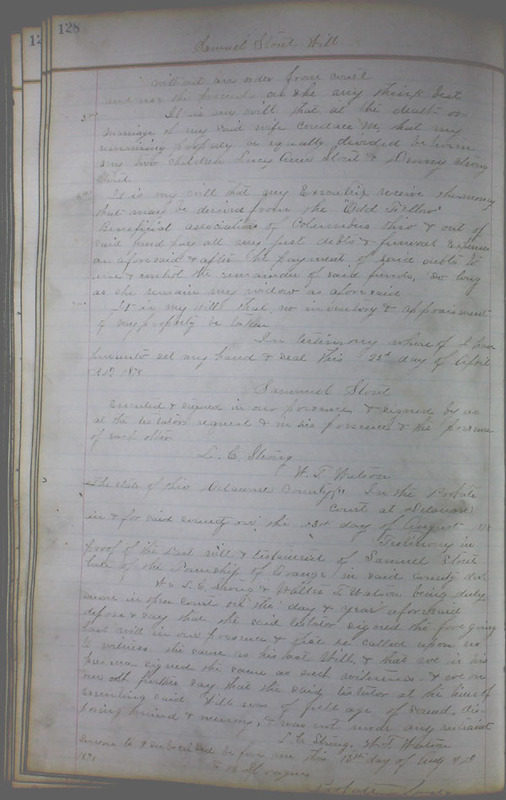 128
Samuel Stout Will
without an order from court
and use the proceeds as she any think best
It is my will that at the death or
marriage of my said wife that my
remaining property be equally divided between
my two children Lucy Ann Stout &
Stout
It is my will that my Executrix receive the money
that may be derived from the "Odd Fellow"
Beneficial association of Columbus Ohio & out of
said fund pay all my just debts & funeral expenses
as aforesaid & after the payment of said debts to
use & control the remainder of said funds, so long
as she remain my widow as aforesaid
It is my will that no inventory & appraisment
of my property be taken
In testimony where of I have
hereunto set my hand & seal this 23d day of April
A.D. 187
Sammuel Stout
Executed & signed in our presence & signed by us
at the testators request & in his presence & the presence
of each other
L. C. Strong
W. T. Watson
The State of Ohio Delaware County ss. In the Probate
Court at Delaware
in & for said county on the 13th day of August
Testimony in
proof of the last will & testament of Samuel Stout
late of the Township of Orange in said county decd
We L. C. Strong & T. Watson being duly
sworn in open court on the day & year aforesaid
depose & say that the said testator signed the foregoing
last will in our presence & that he called upon us
to witness the same as his last Will, & that we in his
presence signed the same as such witnesses. & we
further say that the said testator at the time of
executing said Will was of full age of sound dis
posing mind & memory, & was not under any restraint
L. C. Strong. W. T. Watson
Sworn to & subscribed before me this 13th day of Aug A.D.
187
Probate Judge